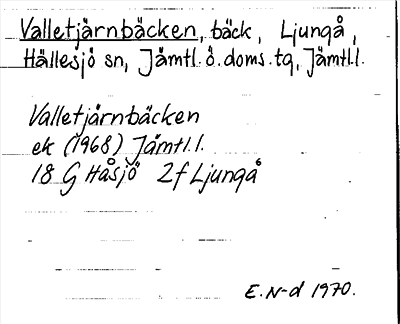 Valletjärnbäcken, bäck, Ljungå,
Hällesjö sn, Jämtl. ö. doms. tg, Jämtl.l.
Valletjärnbäcken
ek (1968) Jämtl.l.
18 G Håsjö 2f Ljungå
E. N-d 1970.